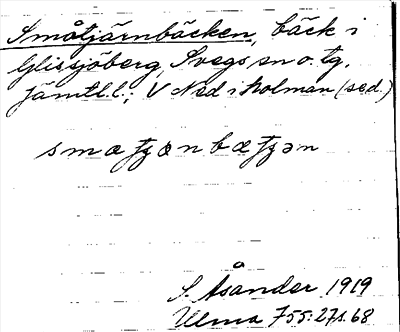 Småtjärnbäcken, bäck i
Glissjöberg, Svegs sn o. tg,
Jämtl. l.; V Ned i Holman (sed.)
S. Åsander 1919
Ulma 755: 271. 68